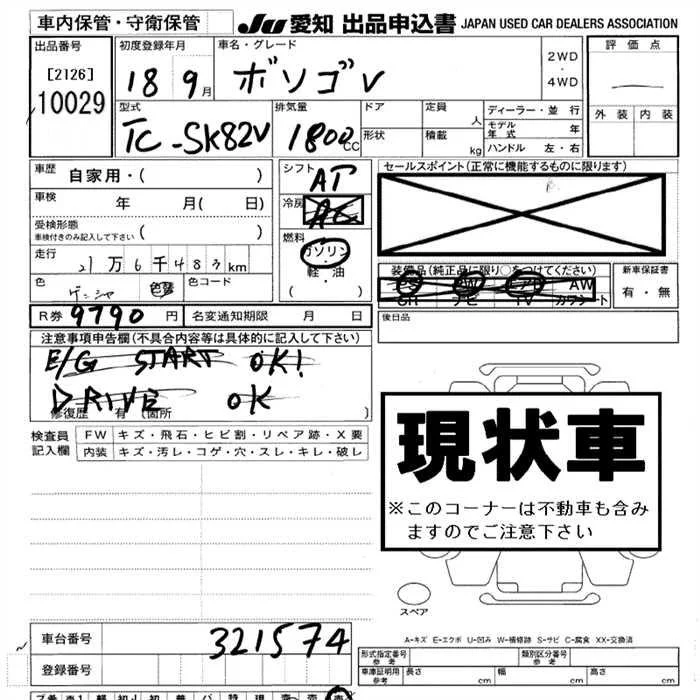 車内保管・守衛保管
JU 愛知 出品申込書 JAPAN USED CAR DEALERS ASSOCIATION
出品番号 初度登録年月 車名・グレード 評価点
[2126] 18 9月 ボンゴV 2WD・4WD
10029 外装 内装
型式 排気量 ドア 定員 人 ディーラー・並行
TC-SK82V 1800CC 形状 積載 kg モデル年式 年
ハンドル 左・右
車歴 自家用・( ) シフト AT セールスポイント(正常に機能するものに限ります)
車検 年 月( 日) 冷房 AC
受検形態 ( )
車検付きのみ記入して下さい
燃料 ガソリン・軽・油 ( )
走行 21万6千483km
装備品(純正品に限り○をつけてください) 新車保証書
PS PW エアB AW 有・無
SR ナビ TV カワシート
色 色替 色コード
R券 9790円 名変通知期限 月 日 後日品
注意事項申告欄(不具合内容等は具体的に記入して下さい)
E/G START OK!
DRIVE OK
修復歴 有(箇所 )
検査員記入欄 FW キズ・飛石・ヒビ割・リペア跡・X要
内装 キズ・汚レ・コゲ・穴・スレ・キレ・破レ
現状車
※このコーナーは不動車も含み
ますのでご注意下さい
スペア
A-キズ E-エクボ U-凹み W-補修跡 S-サビ C-腐食 XX-交換済
車台番号 321574
登録番号
形式指定番号 参考 類別区分番号 参考
車庫証明用 参考 長さ cm 幅 cm 高さ cm